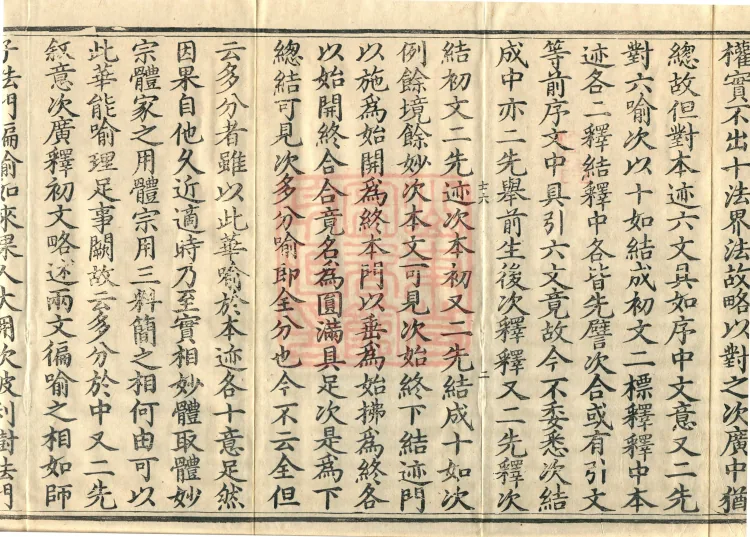 權實不出十法界法故略以對之次廣中猶
總故但對本迹六文具如序中文意又二先
對六喻次以十如結成初文二標釋釋中本
迹各二釋結釋中各皆先譬次合或有引文
等前序文中具引六文竟故今不委悉次結
成中亦二先舉前生後次釋釋又二先釋次
士六 二
結初文二先迹次本初又二先結成十如次
例餘境餘妙次本文可見次始終下結迹門
以施為始開為終本門以垂為始拂為終各
以始開終合合竟名為圓滿具足次是為下
總結可見次多分喻即全分也今不云全但
云多分者雖以此華喻於本迹各十意足然
因果自他久近適時乃至實相妙體取體妙
宗體家之用體宗用三料簡之相何由可以
此華能喻理足事闕故云多分於中又二先
敘意次廣釋初文略述兩文徧喻之相如師
子法門徧喻如來果人大用次波利對法門